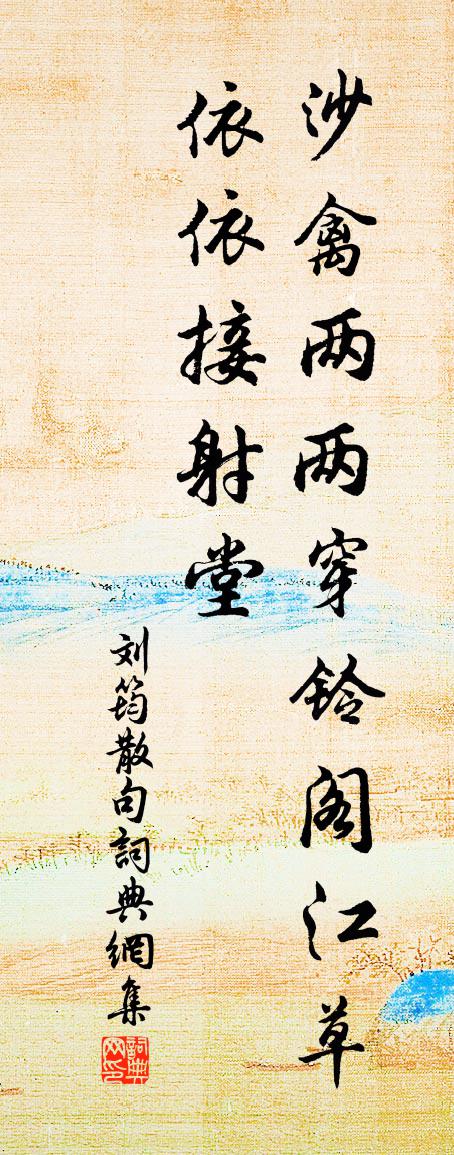 沙禽两两穿铃阁江草
依依接射堂
刘筠散句词典網集
詞典网印